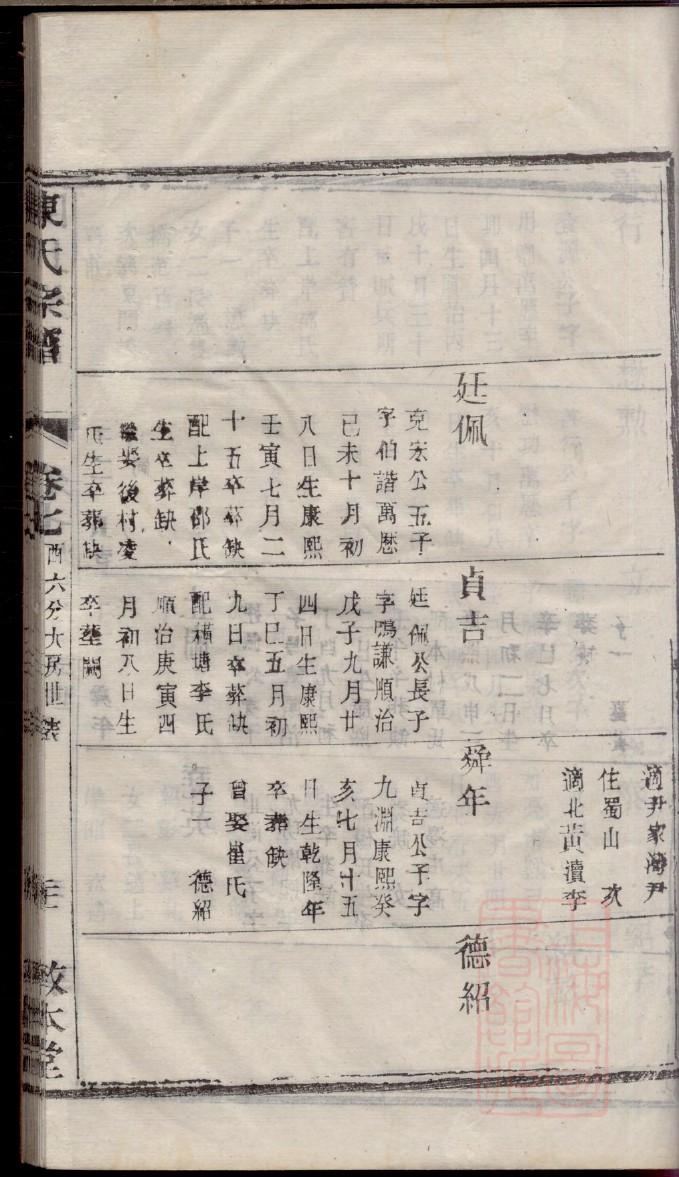 適尹家灣尹
住蜀山 次
適北黄瀆李
廷佩
克宏公五子
字伯諧萬厯
己未十月初
八日生康熙
壬寅七月二
十五卒葬缺
配上岸邵氏
生卒葬缺
繼娶後村凌
氏生卒葬缺
貞吉
廷佩公長子
字鳴謙順治
戊子九月廿
四日生康熙
丁巳五月初
九日卒葬缺
配橫塘李氏
順治庚寅四
月初八日生
卒塟闕
舜年
貞吉公子字
九淵康熙癸
亥七月十五
日生乾隆年
卒葬缺
曾娶崔氏
子一 德紹
德紹
陳氏宗譜
卷七
酉六分大房世
敦本堂